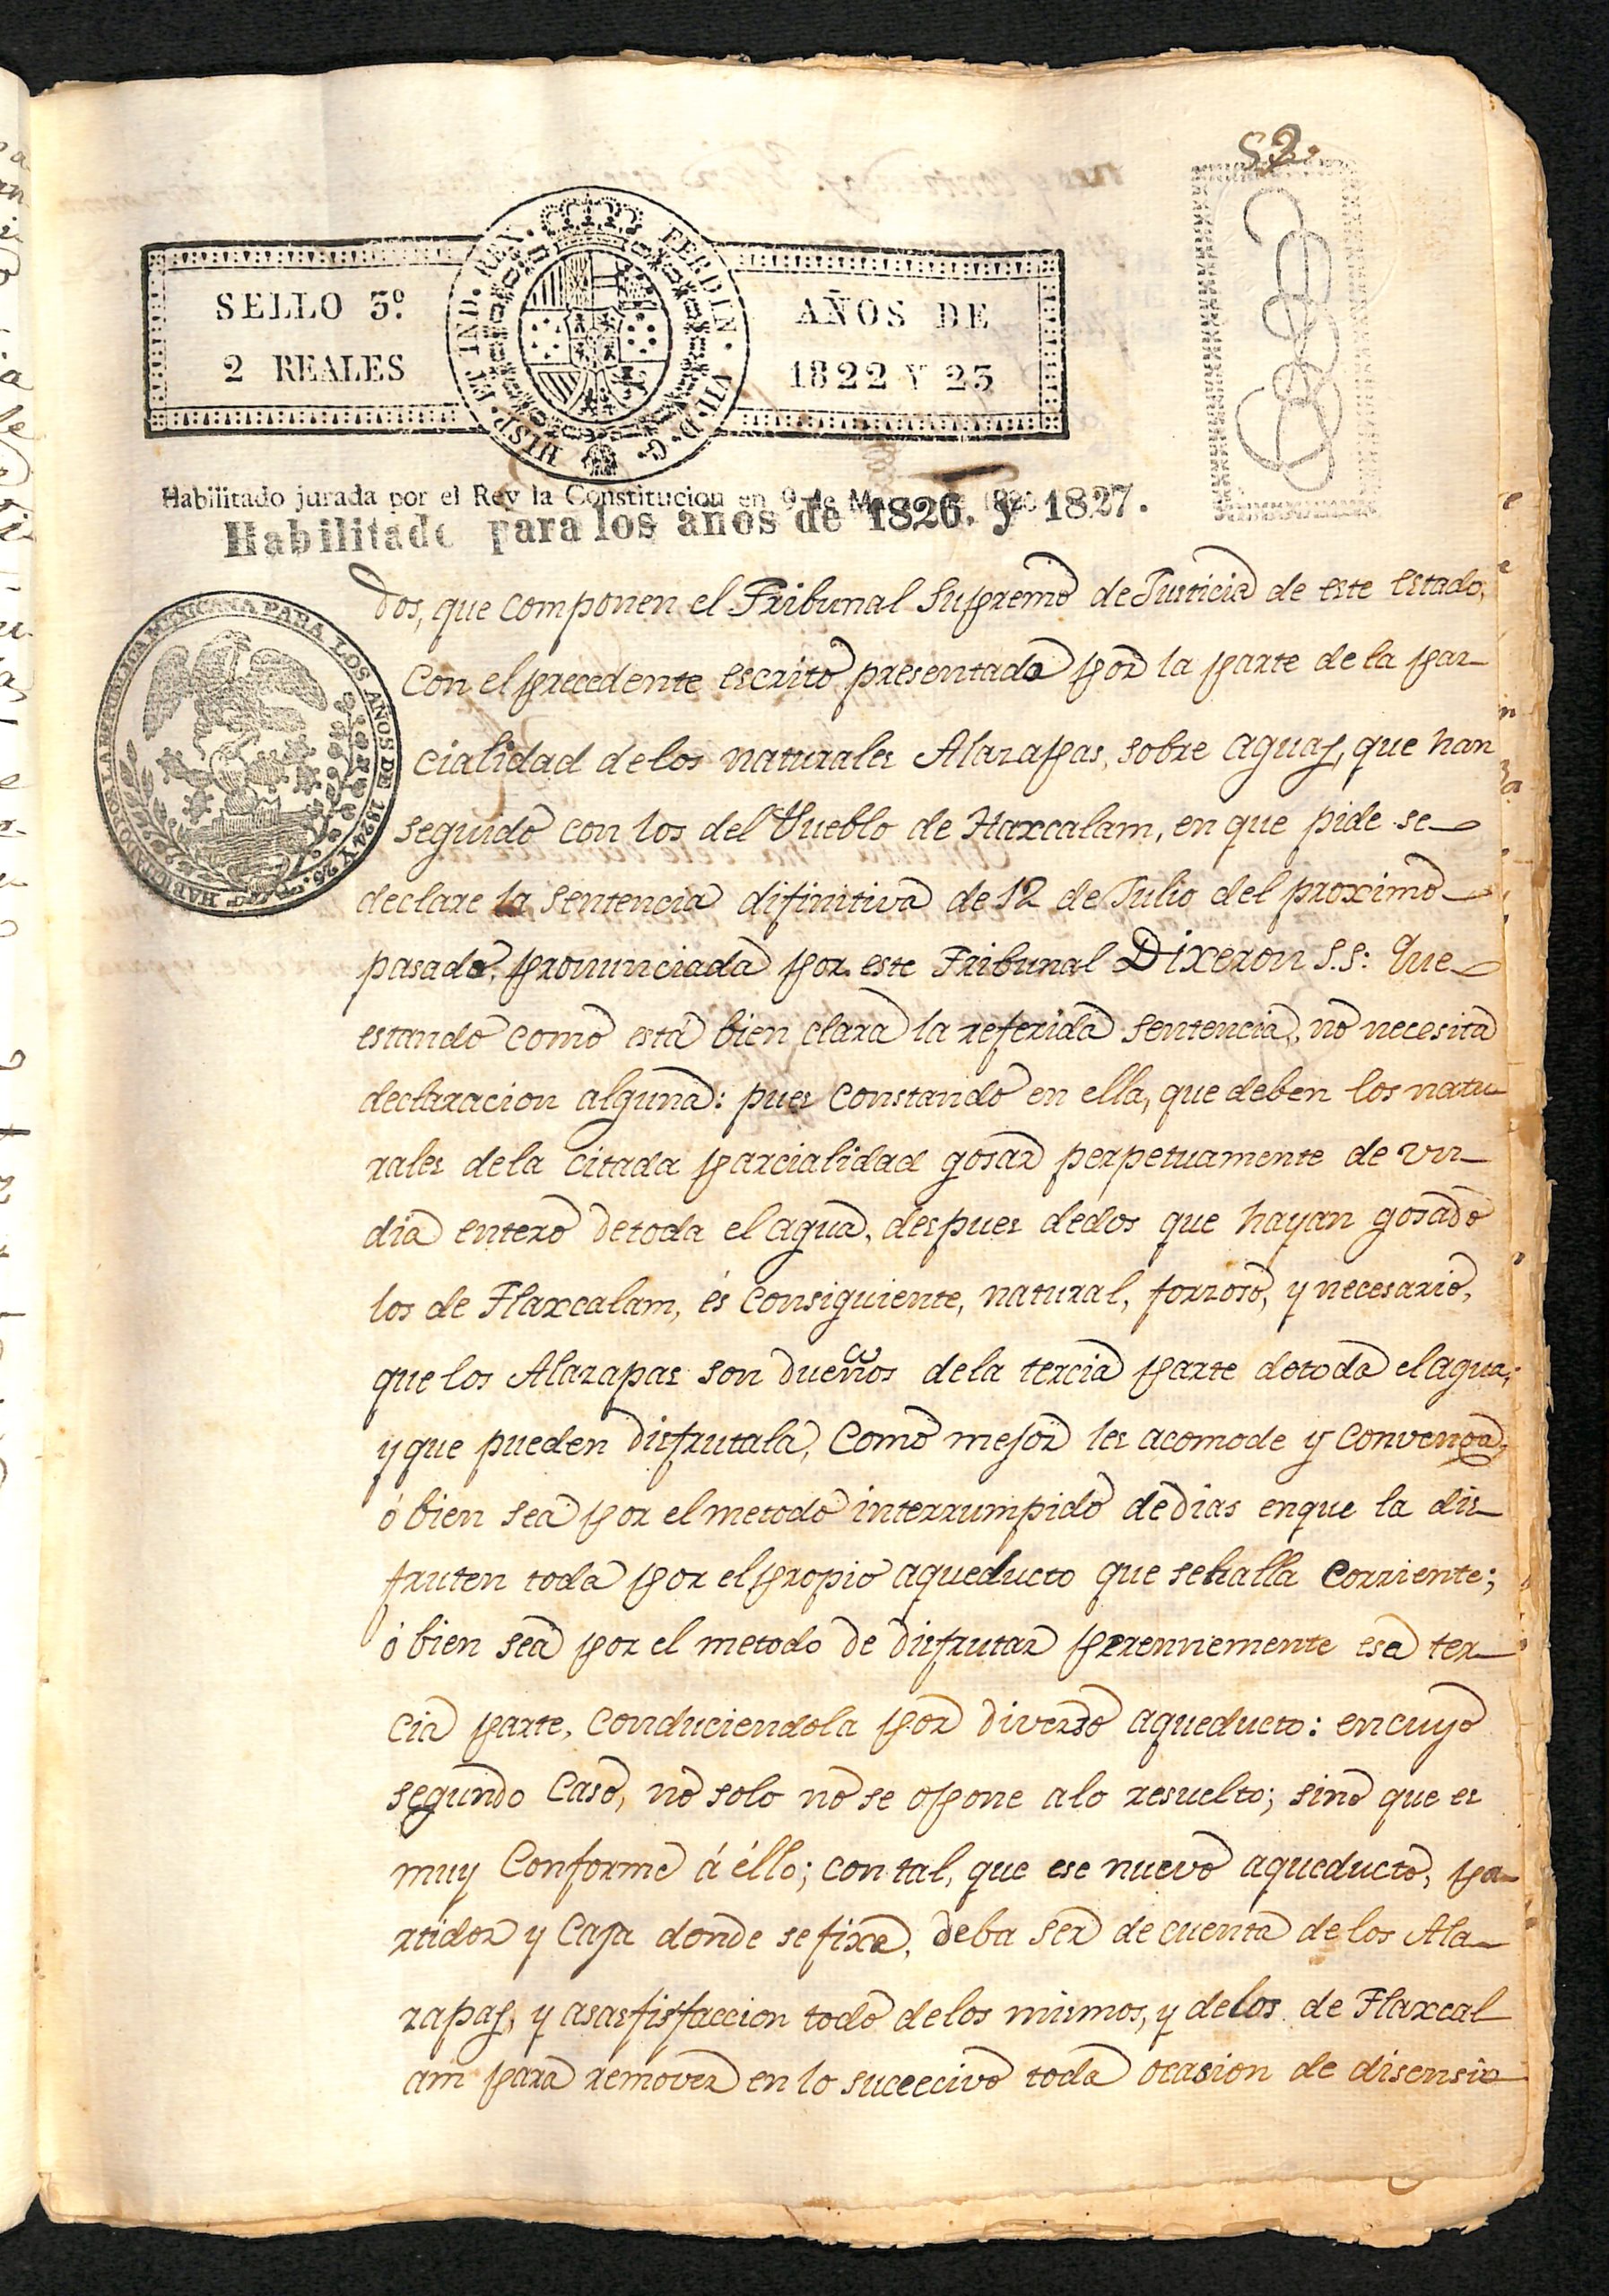 52.
SELLO 3º
2 REALES
HISP. ET IND. REX. FERDIN. VII. D. G.
AÑOS DE
1822 Y 23
Habilitado jurada por el Rey la Constitucion en 9 de
Habilitado para los años de 1826. y 1827.
HABILITADO POR LA REPUBLICA MEXICANA PARA LOS AÑOS DE 1824 Y 25.
dos, que componen el Tribunal Supremo de Justicia de este estado,
Con el precedente escrito presentado por la parte de la par-
cialidad de los naturales Alazapas, sobre aguas, que han
seguido con los del Pueblo de Tlaxcalam, en que pide se-
declare la sentencia difinitiva de 12 de Julio del proximo-
pasado, pronunciada por este Tribunal Dixeron S.S: Que-
estando como está bien clara la referida sentencia, no necesita
declaracion alguna: pues constando en ella, que deben los natu-
rales de la citada parcialidad gosar perpetuamente de un-
dia entero de toda el agua, despues de dos que hayan gosado
los de Tlaxcalam, és consiguiente, natural, forzoso, y necesario,
que los Alazapas son dueños de la tercia parte de toda el agua;
y que pueden disfrutala, Como mejor les acomode y convenga,
ó bien sea por el metodo interrumpido de dias en que la dis-
fruten toda por el propio aqueducto que se halla corriente;
ó bien sea por el metodo de disfrutar perennemente esa ter-
cia parte, conduciendola por diverso aqueducto: en cuyo
segundo Caso, no solo no se opone a lo resuelto; sino que es
muy Conforme á éllo; con tal, que ese nuevo aqueducto, pa-
rtidor y Caja donde se fixe, deba ser de cuenta de los Ala-
zapas, y a sasfisfaccion todo de los mismos, y de los de Tlaxcal
am para remover en lo suceecivo toda ocasion de disensio-